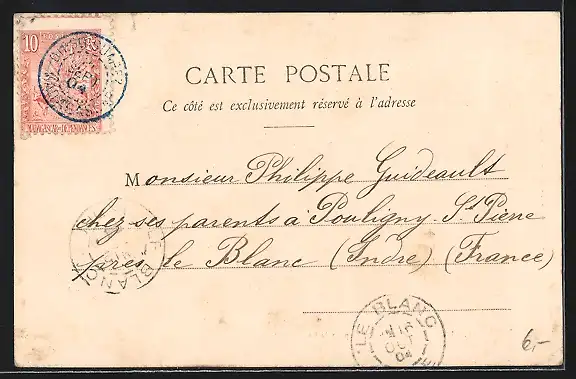 10
MADAGASCAR-DÉPENDANCES
04
CARTE POSTALE
Ce côté est exclusivement réservé à l'adresse
Monsieur Philippe Guideault
chez ses parents à Pouligny St Pierre
près le Blanc (Indre) (France)
LE BLANC
LE BLANC
16
OCT
04
6,-